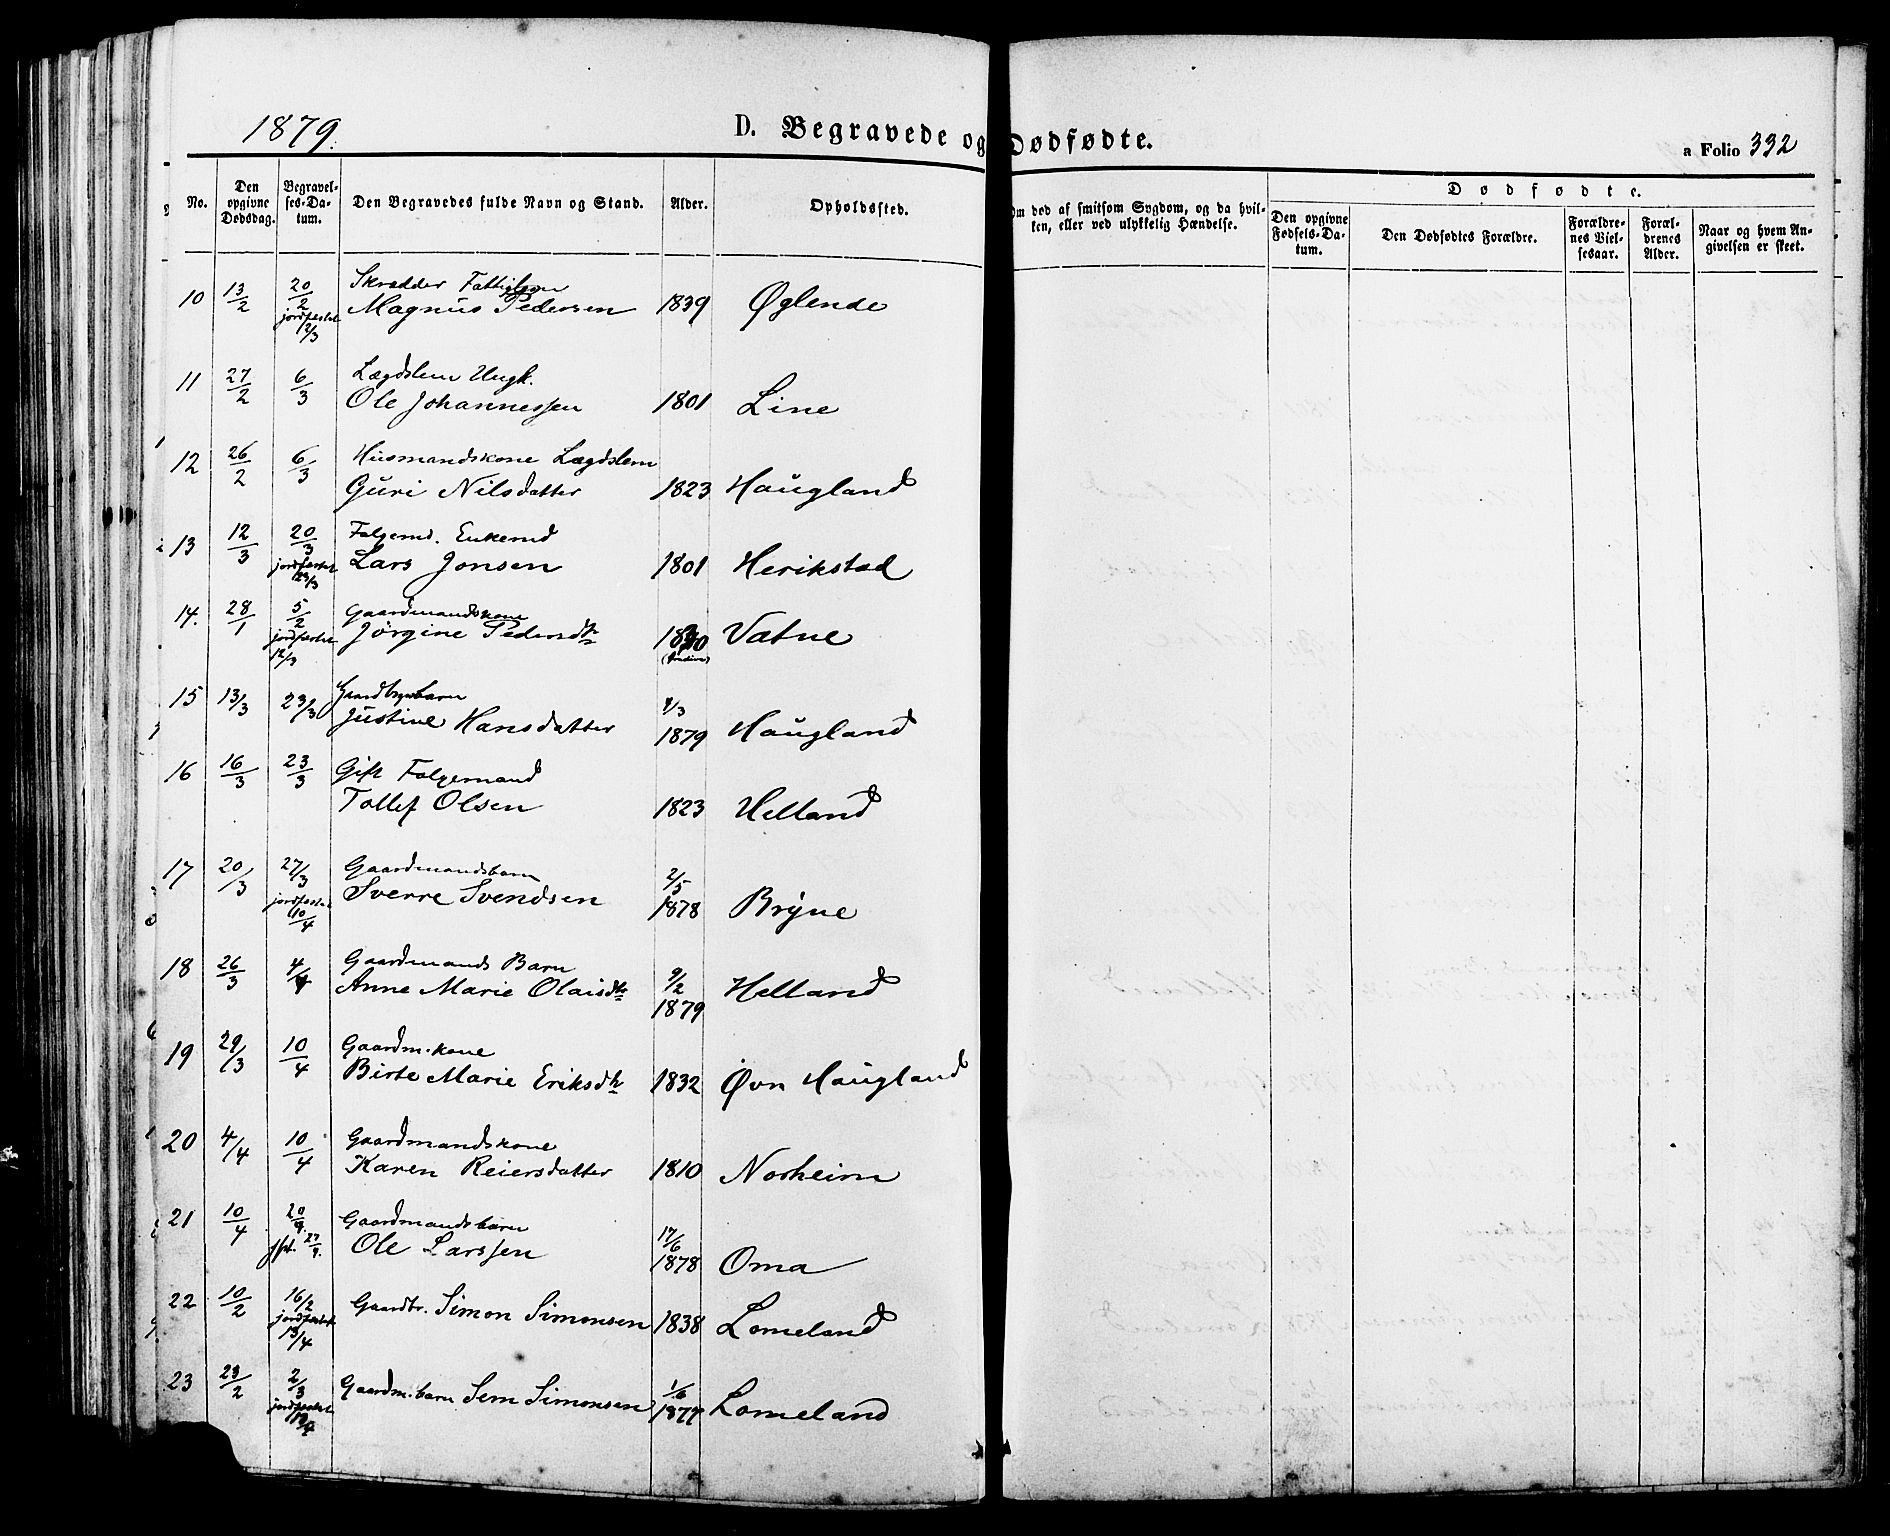 1879.
D. Begravede og Dødfødte.
a Folio 332
No.
Den opgivne Dødsdag.
Begravel-ses-Da-tum.
Den Begravedes fulde Navn og Stand.
Alder.
Opholdssted.
Om død af smitsom Sygdom, og da hvil-ken, eller ved ulykkelig Hændelse.
Dødfødte.
Den opgivne Fødsels-Da-tum.
Den Dødfødtes Forældre.
Forældre-nes Viel-sesaar.
Foræl-drenes Alder.
Naar og hvem An-givelsen er skeet.
10 13/2 20/2 jordfæstet 2/3 Skrædder
Magnus Pedersen 1839 Øglende
11 27/2 6/3 Lægdslem Ungk.
Ole Johannessen 1801 Line
12 26/2 6/3 Husmandskone Lægdslem
Guri Nilsdatter 1823 Haugland
13 12/3 20/3 jordfæstet 23/3 Folgemd. Enkemd
Lars Jonsen 1801 Herikstad
14. 28/1 5/2 jordfæstet 12/3 Gaardmandskone
Jørgine Pedersdtr Vatne
15 13/3 23/3
Justine Hansdatter 1879 Haugland
16 16/3 23/3 Gift Folgemand
Tollef Olsen 1823 Helland
17 20/3 27/3 jordfæstet 10/4 Gaardmandsbarn
Sverre Svendsen 2/5 1878 Bryne
18 26/3 4/4 Gaardmands Barn
Anne Marie Olaisdtr 9/2 1879 Helland
19 29/3 10/4 Gaardm.kone
Birte Marie Eriksdtr 1832 Øvr Haugland
20 4/4 10/4 Gaardmandskone
Karen Reiersdatter 1810 Norheim
21 10/4 20/4 jfst. 27/4. Gaardmandsbarn
Ole Larssen 17/6 1878 Oma
22 10/2 16/2 jordfæstet 13/4 Gaardbr. Simon Simonsen 1838 Lomeland
23 23/2 2/3 jordfæstet 13/4 Gaardm.barn Sem Simonsen 1/6 1877 Lomeland